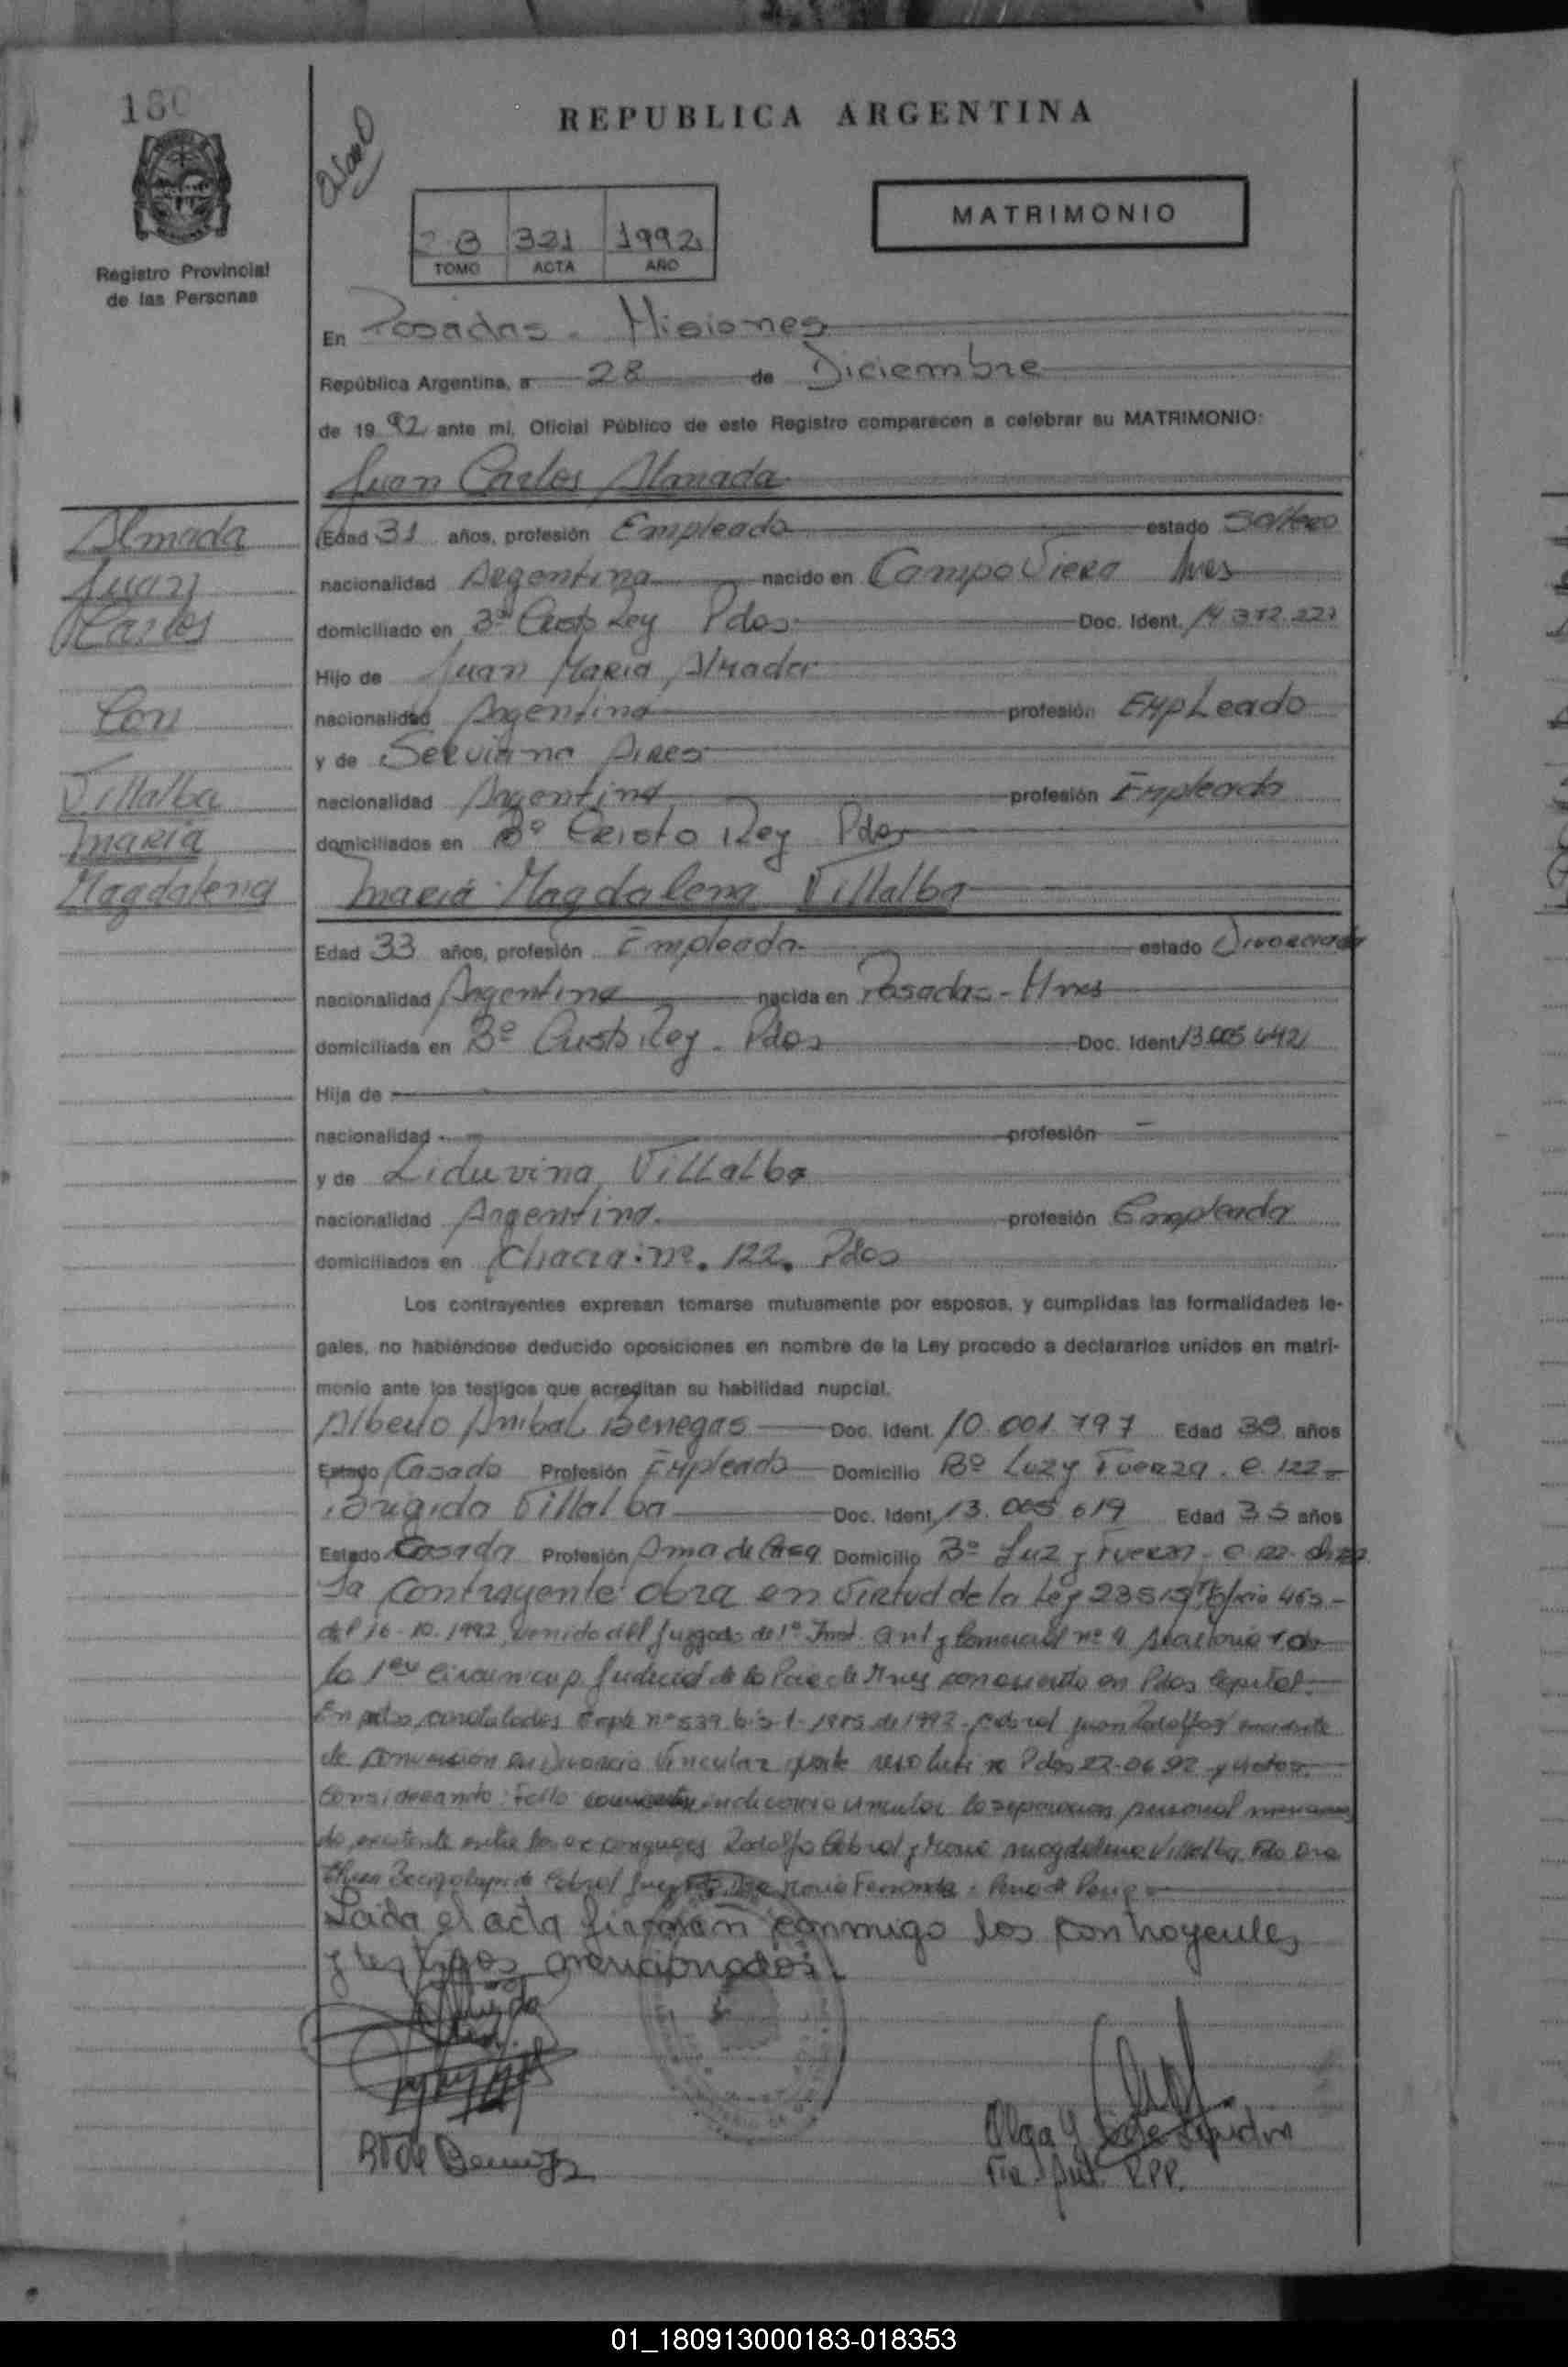 180
REPUBLICA ARGENTINA
MATRIMONIO
2 B 321 1992
TOMO ACTA AÑO
Registro Provincial
de las Personas
En Posadas - Misiones
República Argentina, a 28 de Diciembre
de 1992 ante mí, Oficial Público de este Registro comparecen a celebrar su MATRIMONIO:
Juan Carlos Almada
Almada
Juan
Carlos
Con
Villalba
Maria
Magdalena
Edad 31 años, profesión Empleado estado Soltero
nacionalidad Argentina nacido en Campo Viera Mnes
domiciliado en Bº Cristo Rey Pdas Doc. Ident. 14.372.221
Hijo de Juan Maria Almada
nacionalidad Argentina profesión Empleado
y de Serviana Pires
nacionalidad Argentina profesión Empleada
domiciliados en Bº Cristo Rey Pdas
Maria Magdalena Villalba
Edad 33 años, profesión Empleada estado Divorciada
nacionalidad Argentina nacida en Posadas - Mnes
domiciliada en Bº Cristo Rey - Pdas Doc. Ident. 13.005.642
Hija de
nacionalidad - profesión -
y de Liduvina Villalba
nacionalidad Argentina profesión Empleada
domiciliados en Chacra nº 122. Pdas
Los contrayentes expresan tomarse mutuamente por esposos, y cumplidas las formalidades le-
gales, no habiéndose deducido oposiciones en nombre de la Ley procedo a declararlos unidos en matri-
monio ante los testigos que acreditan su habilidad nupcial.
Alberto Anibal Benegas Doc. Ident. 10.001.797 Edad 39 años
Estado Casado Profesión Empleado Domicilio Bº Luz y Fuerza. C. 122-
Brigida Villalba Doc. Ident. 13.005.619 Edad 35 años
Estado Casada Profesión Ama de Casa Domicilio Bº Luz y Fuerza - C. 122.
La contrayente obra en virtud de la Ley 23515 Oficio 463-
del 16-10-1992 venido del Juzgado de 1º Inst. Civil y Comercial nº 4 de
la 1era Circunscrip. Judicial de la Pcia de Mnes con asiento en Pdas Capital.
En autos caratulados Expte nº 539 bis 1-1985 de 1992 - Cabral Juan Rodolfo
de conversión en Divorcio Vincular Pdas 22-06-92 y Vistos
Considerando: Fallo en divorcio vincular la separacion personal
existente entre los ex conyuges Rodolfo Cabral y Maria Magdalena Villalba Fdo Dra
de Cabral Juez Maria Fernanda
Leida el acta firman conmigo los contrayentes
y testigos mencionados.
BV de Benegas
Olga
R.P.P.
01_180913000183-018353